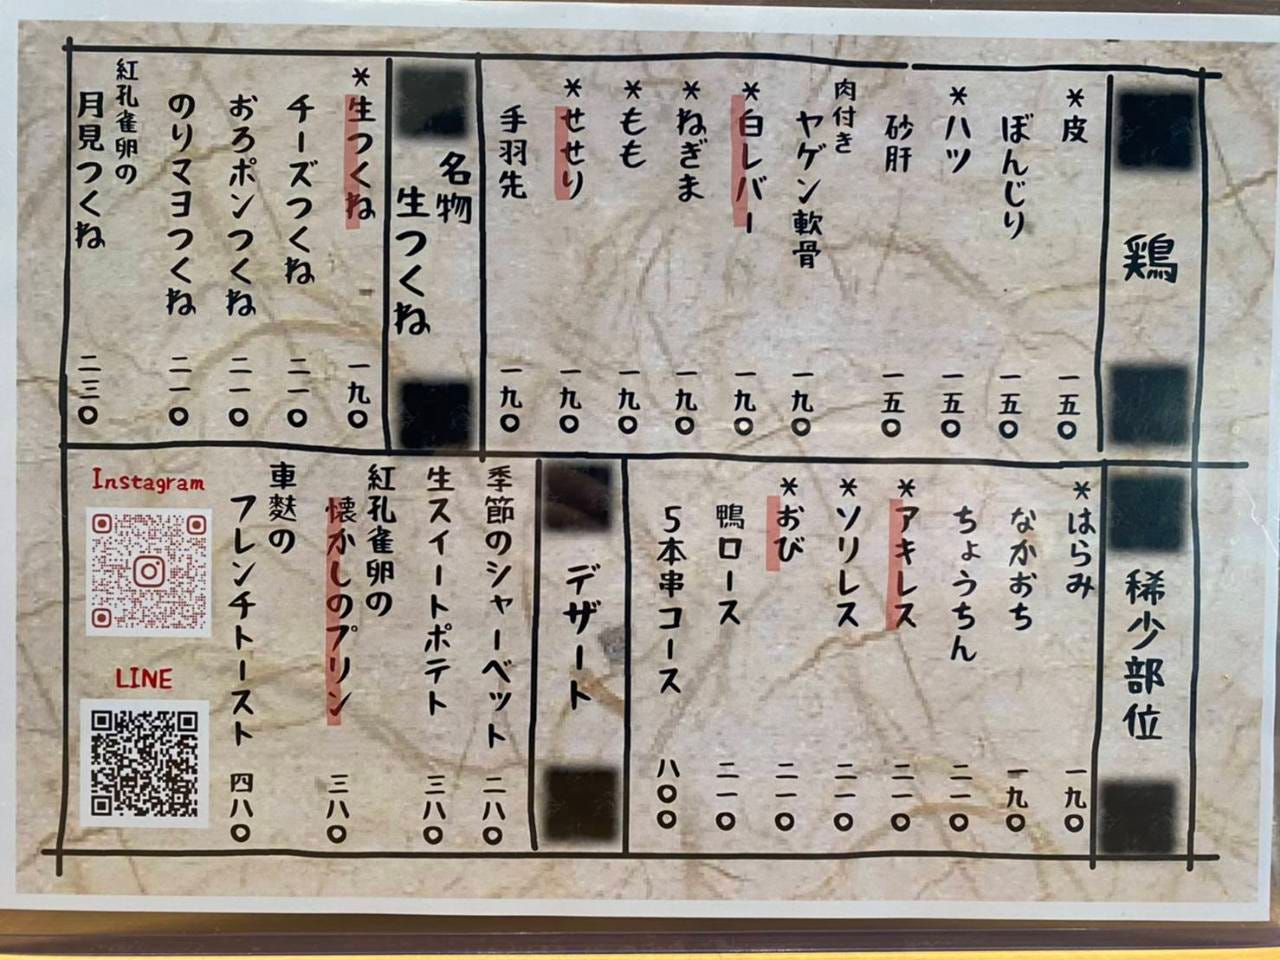 鶏
*皮 一五〇
ぼんじり 一五〇
*ハツ 一五〇
砂肝 一五〇
肉付き
ヤゲン軟骨 一九〇
*白レバー 一九〇
*ねぎま 一九〇
*もも 一九〇
*せせり 一九〇
手羽先 一九〇
名物
生つくね
*生つくね 一九〇
チーズつくね 二一〇
おろポンつくね 二一〇
のりマヨつくね 二一〇
紅孔雀卵の
月見つくね 二三〇
稀少部位
*はらみ 一九〇
なかおち 一九〇
ちょうちん 二一〇
*アキレス 二一〇
*ソリレス 二一〇
*おび 二一〇
鴨ロース 二一〇
5本串コース 八〇〇
デザート
季節のシャーベット 二八〇
生スイートポテト 三八〇
紅孔雀卵の
懐かしのプリン 三八〇
車麩の
フレンチトースト 四八〇
Instagram
LINE